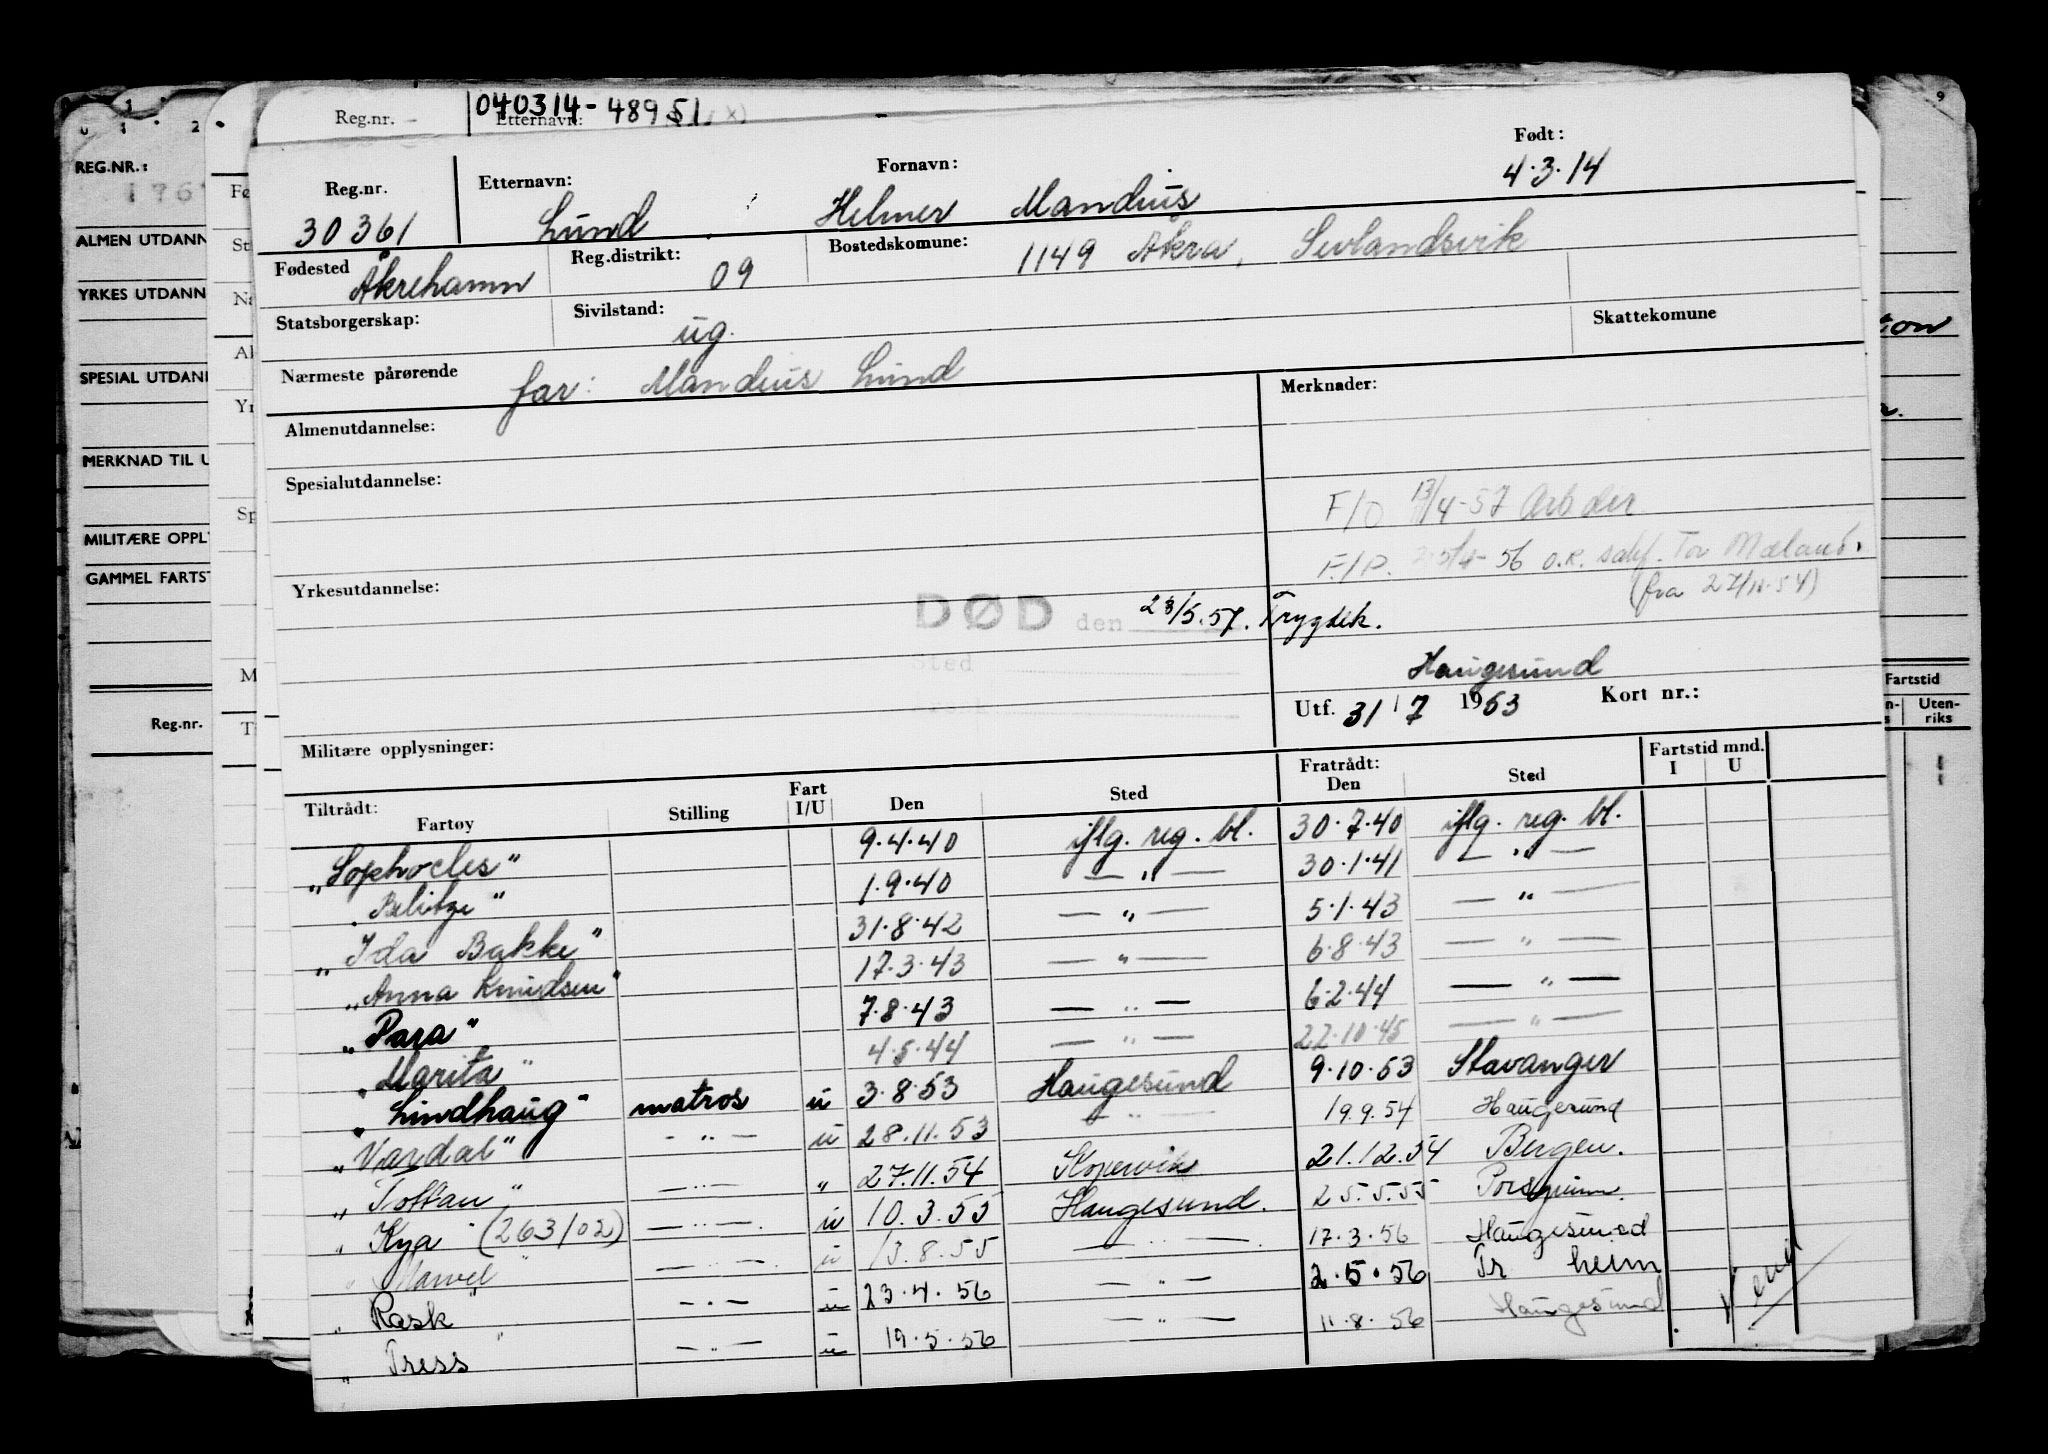 Reg.nr.
040314-48951
Etternavn:
Reg.nr.
30361
Etternavn:
Lund
Fornavn:
Helmer Mandius
Født:
4.3.14
Fødested
Åkrehamn
Reg.distrikt:
09
Bostedskomune:
1149 Åkra, Sevlandsvik
Statsborgerskap:
Sivilstand:
ug.
Skattekomune
Nærmeste pårørende
far: Mandius Lund
Almenutdannelse:
Merknader:
Spesialutdannelse:
F/O 13/4-57 Arb der
F/P. 56 o.k. Tor Mæland.
(fra 27/11-54)
Yrkesutdannelse:
DØD den 23/5.57. Trygdek.
Sted
Haugesund
Utf. 31/7 1953 Kort nr.:
Militære opplysninger:
Tiltrådt: Fartøy Stilling Fart I/U Den Sted Fratrådt: Den Sted Fartstid mnd. I U
"Sophocles" 9.4.40 iflg. reg. bl. 30.7.40 iflg. reg. bl.
"Belitze" 1.9.40 — " — 30.1.41 — " —
"Ida Bakke" 31.8.42 — " — 5.1.43 — " —
"Anna Knudsen" 17.3.43 — " — 6.8.43 — " —
"Para" 7.8.43 — " — 6.2.44 — " —
"Marita" 4.5.44 — " — 22.10.45 — " —
"Lindhaug" matros u 3.8.53 Haugesund 9.10.53 Stavanger
"Vardal" — " — u 28.11.53 — " — 19.9.54 Haugesund
"Toftan" — " — " 27.11.54 Kopervik 21.12.54 Bergen.
"Kya" (263/02) — " — u 10.3.55 Haugesund. 25.5.55 Porsgrunn.
"Marvel" — " — u 13.8.55 — " — 17.3.56 Haugesund
"Rask" — " — u 23.4.56 — " — 2.5.56 Tr heim
"Tress" — " — u 19.5.56 — " — 11.8.56 Haugesund
Vend
REG.NR.:
ALMEN UTDANN
YRKES UTDANN
SPESIAL UTDAN
MERKNAD TIL U
MILITÆRE OPPL
GAMMEL FARTST
Reg.nr.
Fartstid
Uten-
riks